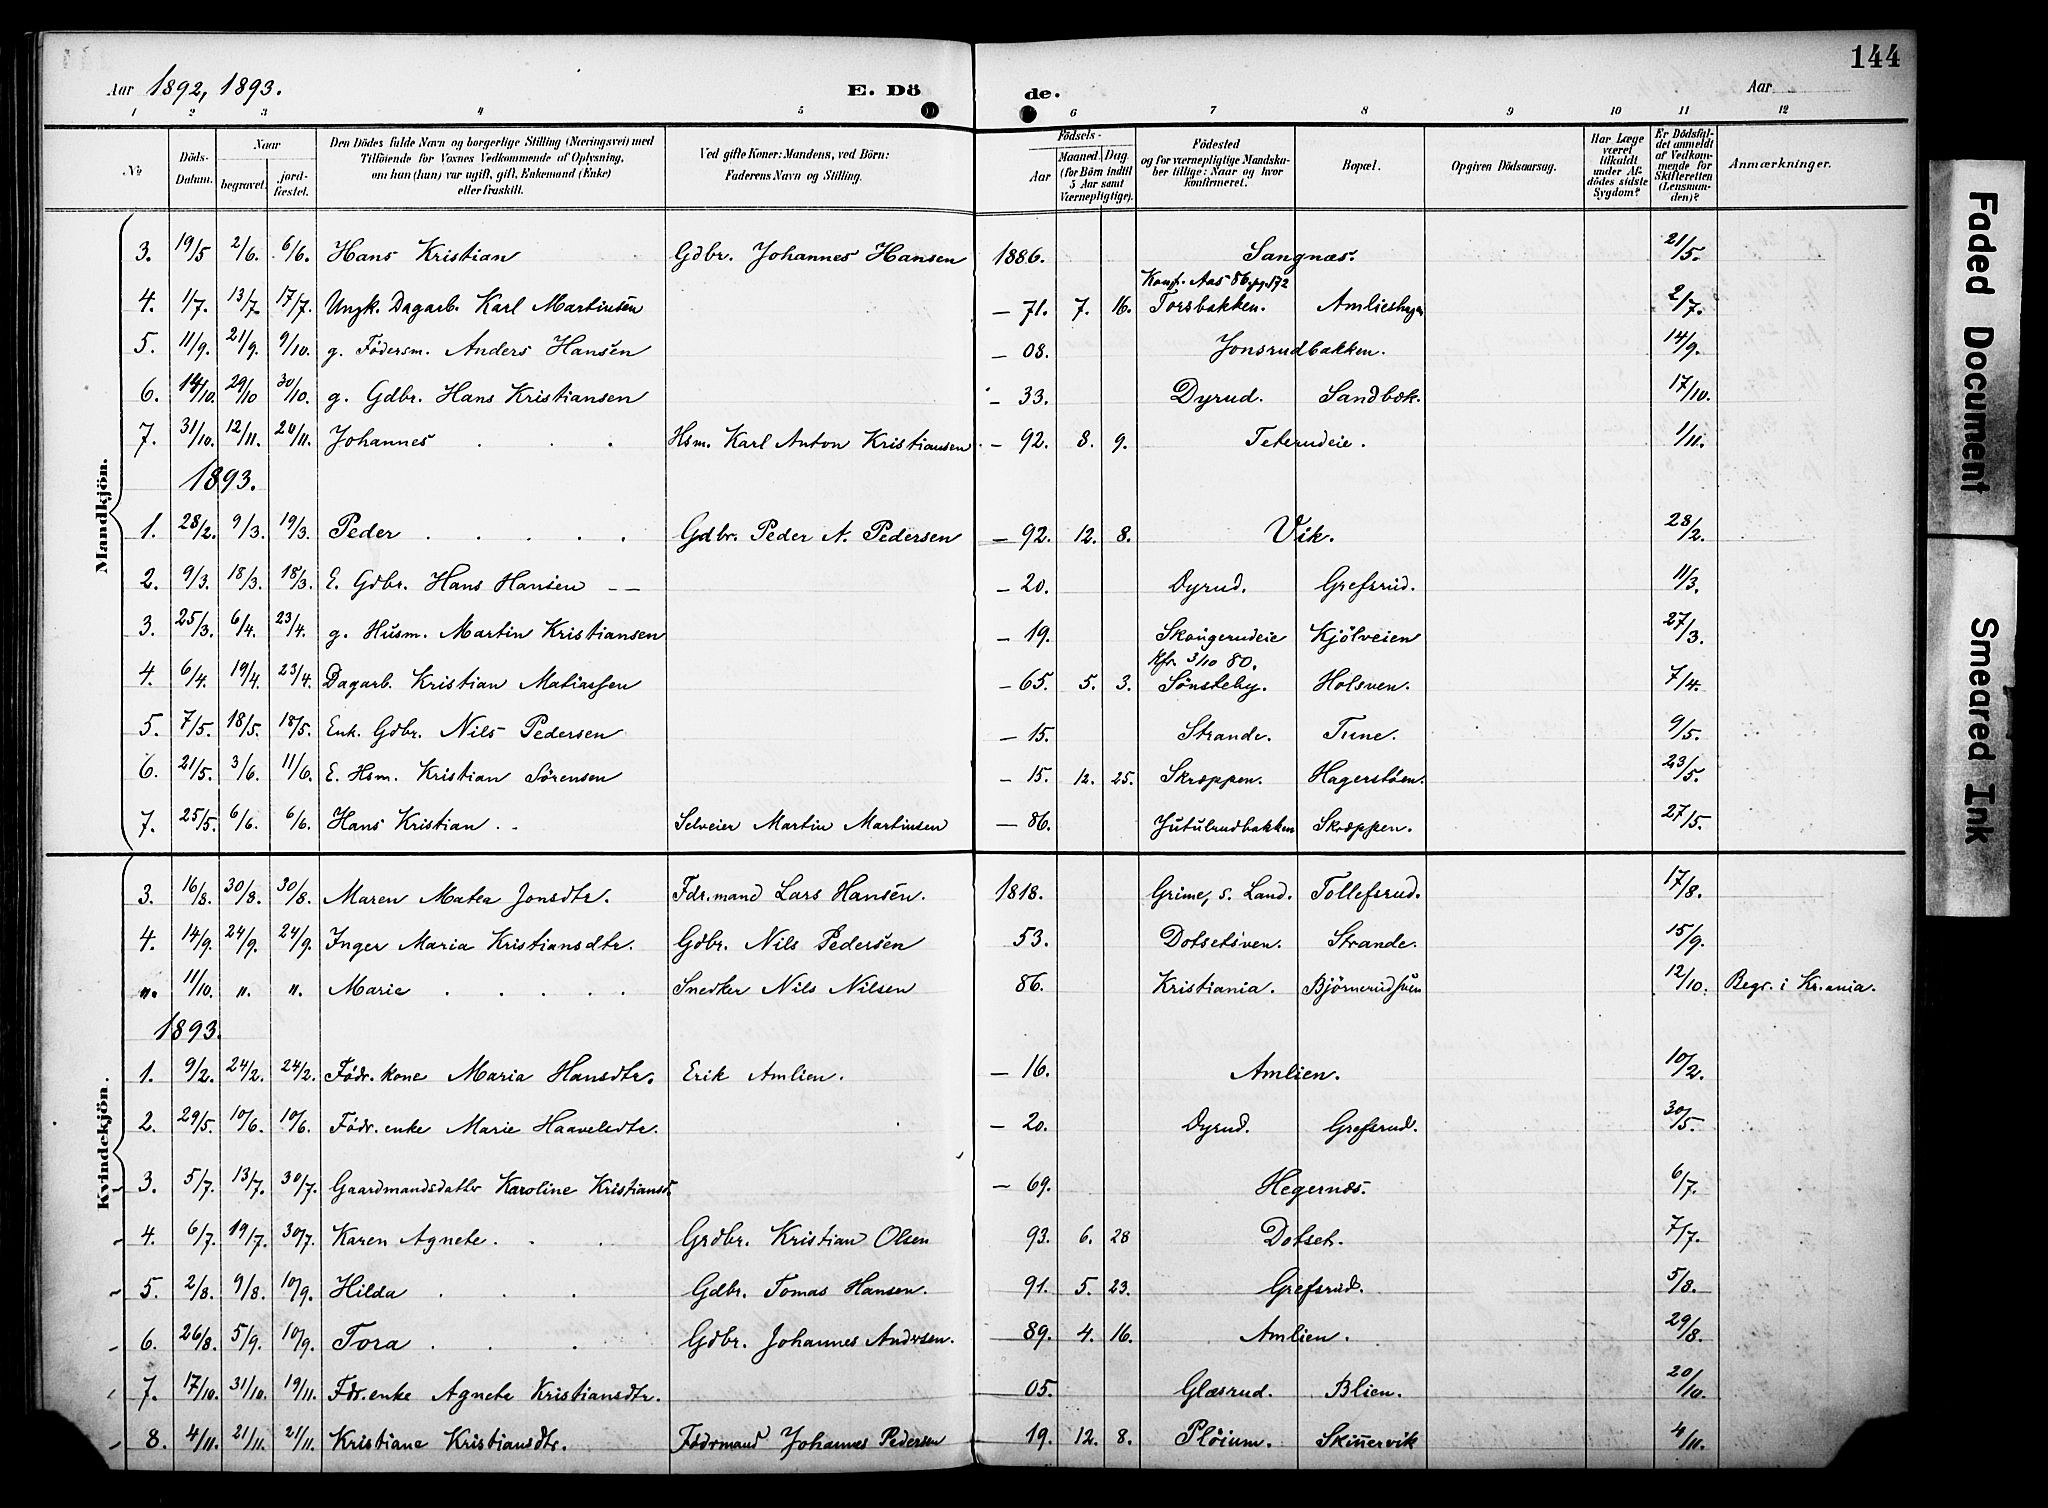 144
Aar 1892, 1893. E. Dö de. Aar
1 2 3 4 5 6 7 8 9 10 11 12
No Döds-Datum. Naar begravet. jordfæstet. Den Dödes fulde Navn og borgerlige Stilling (Næringsvei) med Tilföiende for Voxnes Vedkommende af Oplysning, om han (hun) var ugift, gift, Enkemand (Enke) eller fraskilt. Ved gifte Koner: Mandens, ved Börn: Faderens Navn og Stilling. Födsels- Aar Maaned. Dag. (for Börn indtil 5 Aar samt Værnepligtige). Födested og for værnepligtige Mandskaber tillige: Naar og hvor konfirmeret. Bopæl. Opgiven Dödsaarsag. Har Læge været tilkaldt under Afdödes sidste Sygdom? Er Dödsfaldet anmeldt af Vedkommende for Skifteretten (Lensmanden)? Anmærkninger.
Mandkjön.
3. 19/5 2/6. 6/6. Hans Kristian Gdbr. Johannes Hansen 1886. Sangnæs. 21/5.
4. 1/7. 13/7. 17/7. Ungk. Dagarb. Karl Martinsen — 71. 7. 16. Konf. Aas 86 Torsbakken. 2/7.
5. 11/9. 21/9. 9/10. g. Födersm. Anders Hansen — 08. Jonsrudbakken. 14/9.
6. 14/10. 29/10 30/10. g. Gdbr. Hans Kristiansen — 33. Dyrud. Sandbæk. 17/10.
7. 31/10. 12/11. 20/11. Johannes . . . Hsm. Karl Anton Kristiansen. — 92. 8. 9. Teterudeie. 1/11.
1893.
1. 28/2. 9/3. 19/3. Peder . . . . . Gdbr. Peder N. Pedersen — 92. 12. 8. Vik. 28/2.
2. 9/3. 18/3. 18/3. E. Gdbr. Hans Hansen — — — 20. Dyrud. Grefsrud. 11/3.
3. 25/3. 6/4. 23/4. g. Husm. Martin Kristiansen — 19. Skougerudeie Kjölveien 27/3.
4. 6/4. 19/4. 23/4. Dagarb. Kristian Matiassen — 65. 5. 3. Kfr. 3/10 80. Sönsteby. Holsven. 7/4.
5. 7/5. 18/5. 18/5. Enk. Gdbr. Nils Pedersen — 15. Strande. Tune. 9/5.
6. 21/5. 3/6. 11/6. E. Hsm. Kristian Sörensen — 15. 12. 25. Skræppen. Hagerstöen. 23/5.
7. 25/5. 6/6. 6/6. Hans Kristian . . Selveier Martin Martinsen — 86. Jutulrudbakken Skræppen. 27/5.
Kvindekjön.
3. 16/8. 30/8. 30/8. Maren Matea Jonsdtr. Fdr.mand Lars Hansen. 1818. Grime, s. Land. Tollefsrud. 17/8.
4. 14/9. 24/9. 24/9. Inger Maria Kristiansdtr. Gdbr. Nils Pedersen 53. Dotsetsven. Strande. 15/9.
". 11/10. ". ". Marie . . . . . Snedker Nils Nilsen 86. Kristiania. Björnerudsven 12/10. Begr. i Kr.ania.
1893.
1. 9/2. 24/2. 24/2. Födr.kone Maria Hansdtr. Erik Amlien. — 16. Amlien. 10/2.
2. 29/5. 10/6. 10/6. Födr.enke Marie Haavelsdtr. — 20. Dyrud. Grefsrud. 30/5.
3. 5/7. 13/7. 30/7. Gaardmandsdatter Karoline Kristiansd. — 69. Hegernæs. 6/7.
4. 6/7. 19/7. 30/7. Karen Agnete. . . Grdbr. Kristian Olsen 93. 6. 28 Dotset. 7/7.
5. 2/8. 9/8. 10/9. Hilda . . . Gdbr. Tomas Hansen. 91. 5. 23. Grefsrud. 5/8.
6. 26/8. 5/9. 10/9. Tora . . . Gdbr. Johannes Andrsen. — 89. 4. 16. Amlien. 29/8.
7. 17/10. 31/10. 19/11. Fdr.enke Agnete Kristiansdtr. 05. Glæsrud. Blien. 20/10.
8. 4/11. 21/11. 21/11. Kristiane Kristiansdtr. Födrmand Johannes Pedersen 19. 12. 8. Plöium. Skinnervik 4/11.
Faded Document
Smeared Ink